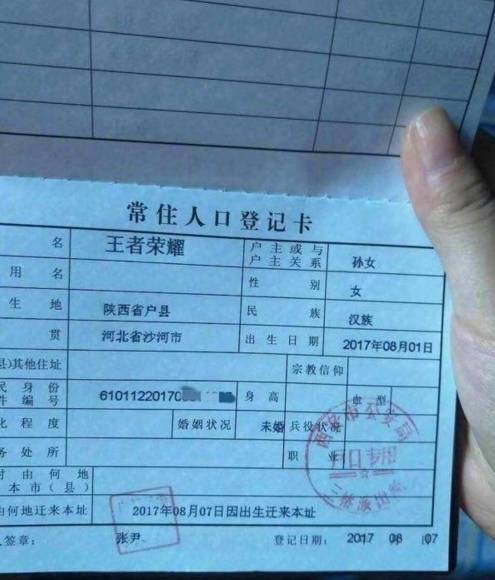 常住人口登记卡
名 王者荣耀 户主或与户主关系 孙女
用名 性别 女
生地 陕西省户县 民族 汉族
贯 河北省沙河市 出生日期 2017年08月01日
县)其他住址 宗教信仰
民身份件编号 61011220170 身高 血型
化程度 婚姻状况 未婚 兵役状况
务处所 职业
时由何地本市(县)
由何地迁来本址 2017年08月07日因出生迁来本址
人签章: 张尹 登记日期: 2017 年 08 月 07
西安市公安局
户口专用